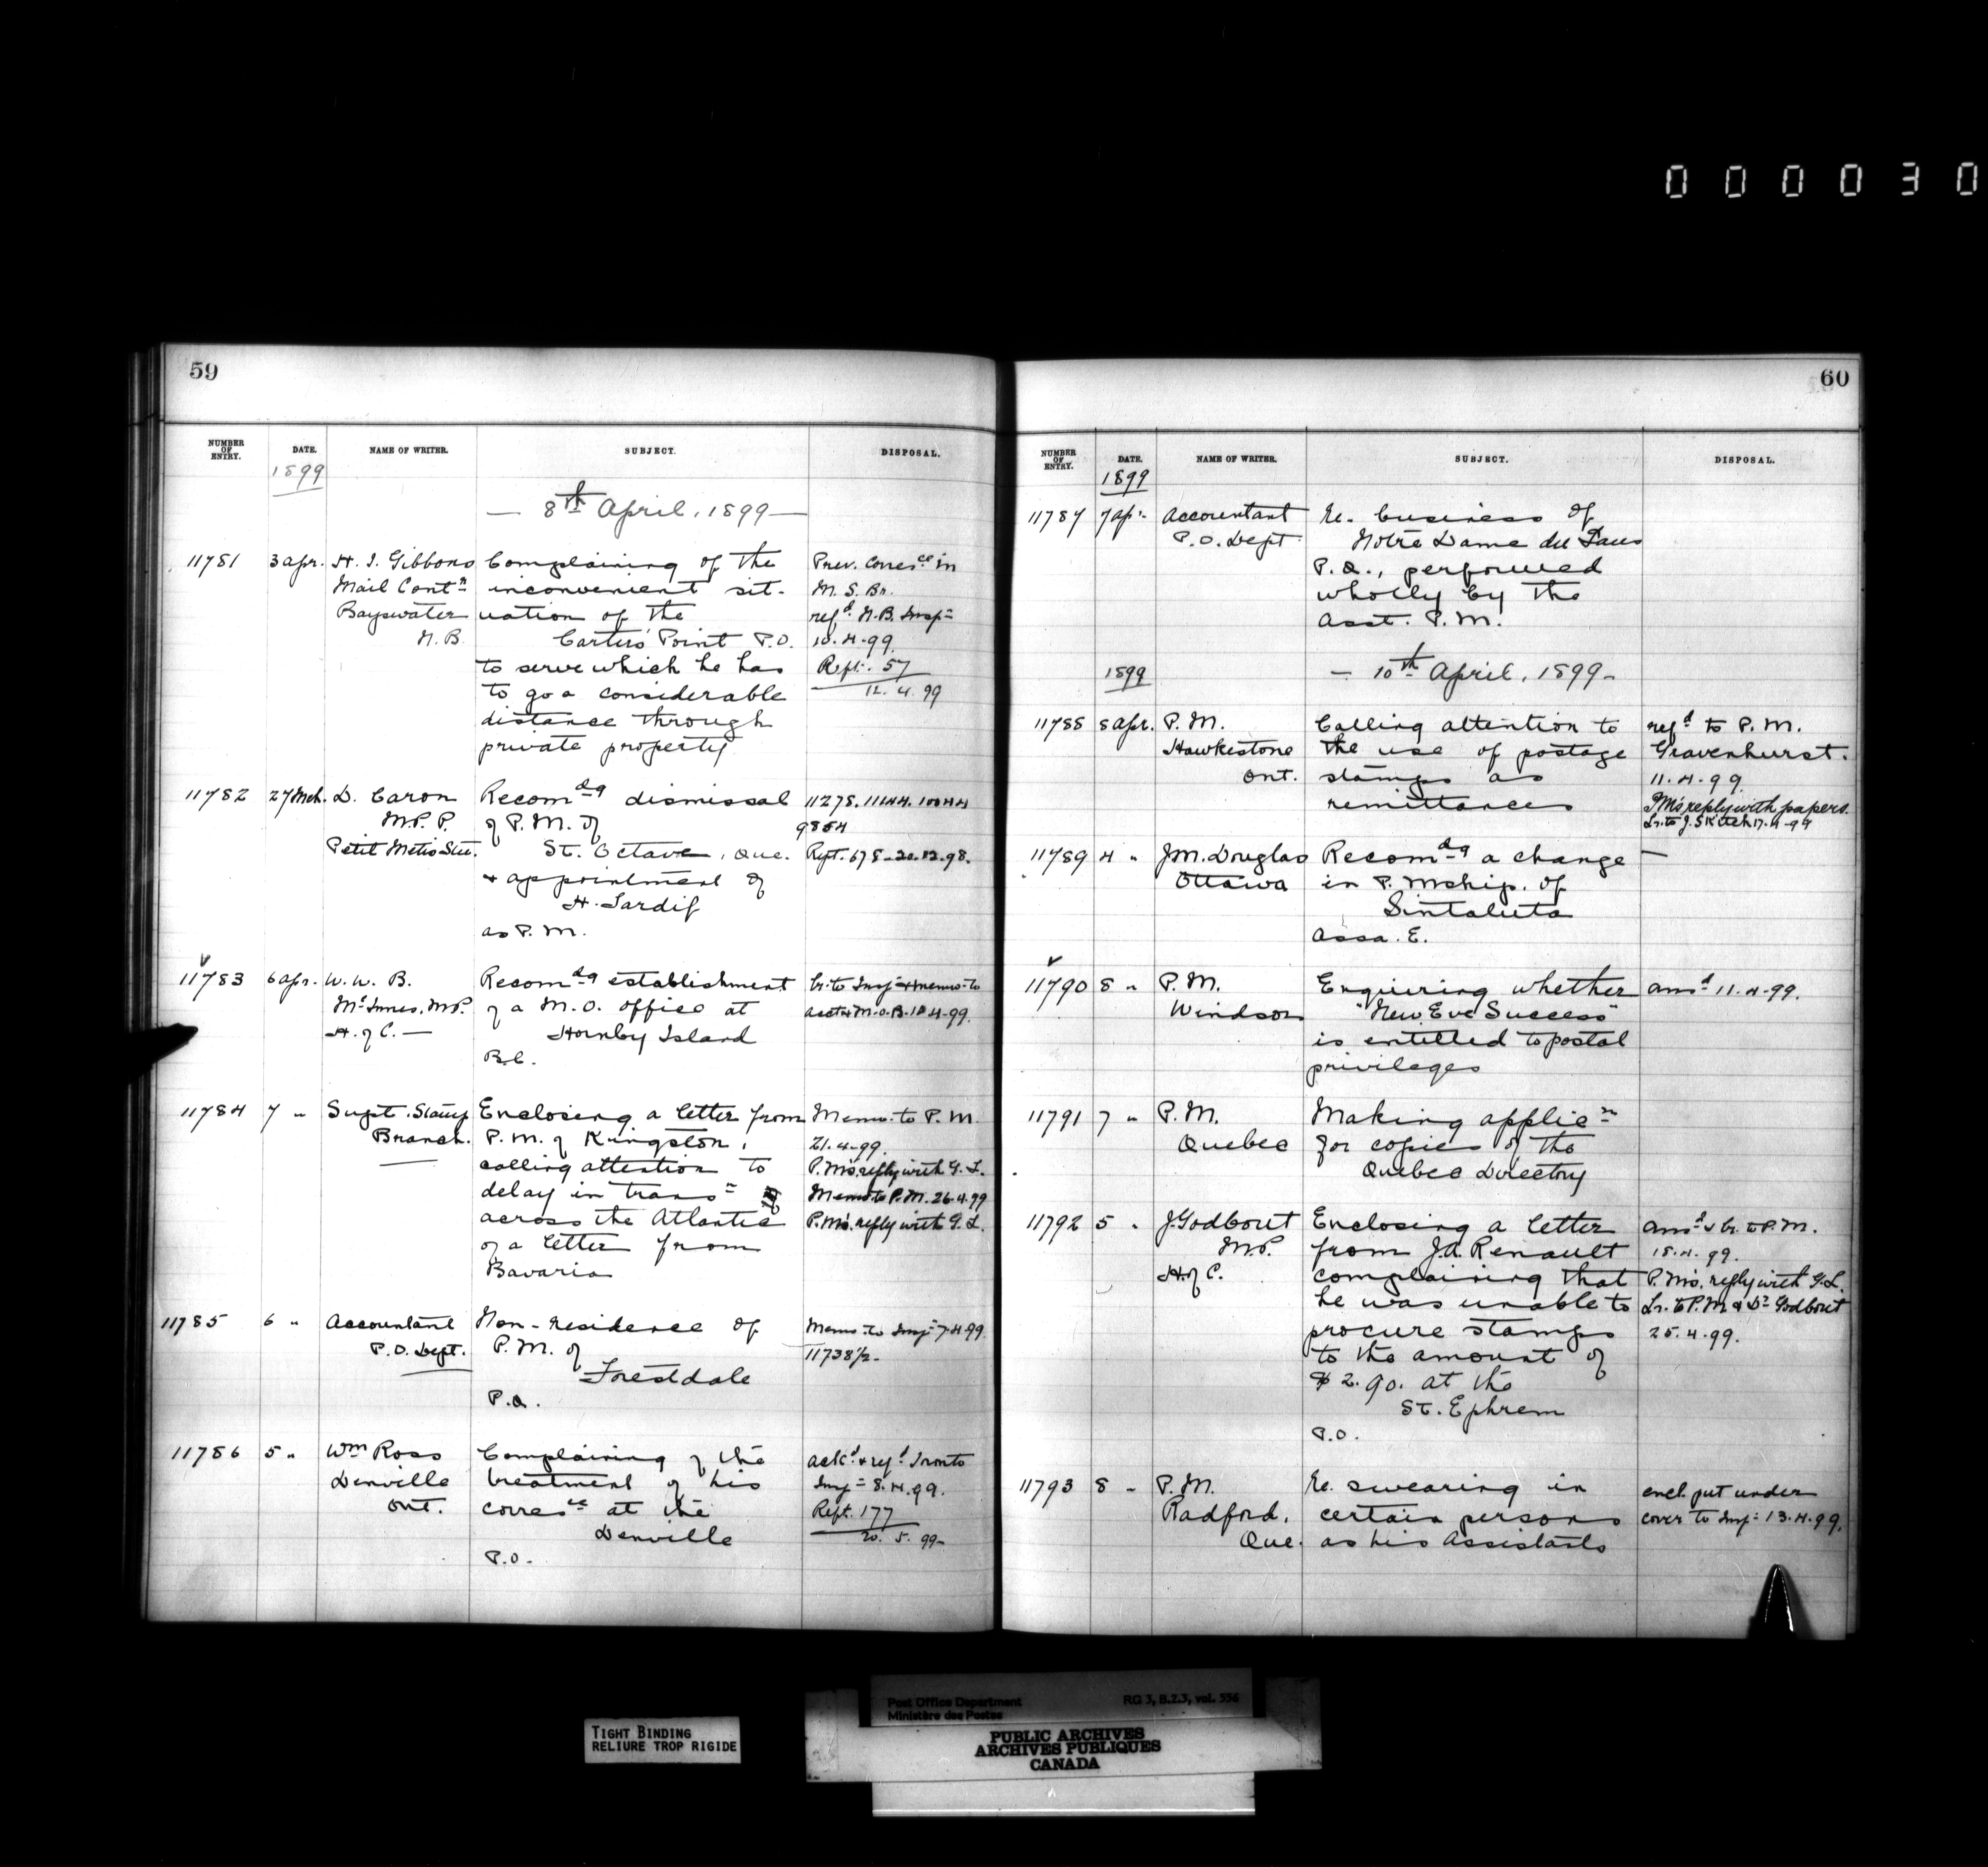 000030
59
NUMBER OF ENTRY. DATE. NAME OF WRITER. SUBJECT. DISPOSAL.
1899
— 8th April, 1899 —
11781 3 apr. H. I. Gibbons Complaining of the Prev. Corresce in
Mail Contn inconvenient sit- M. S. Br.
Bayswater uation of the refd N.B. Insp=
N.B. Carter's Point P.O. 10.4.99.
to serve which he has Rept. 57
to go a considerable 12.4.99
distance through
private property
11782 27 Mch. D. Caron Recomdg dismissal 11278. 11144. 10044
M.P.P. of P.M. of 9854
Petit Metis Stn. St. Octave, Que. Rept. 678-20.12.98.
+ appointment of
H. Tardif
as P.M.
11783 6 apr. W. W. B. Recomdg establishment Lr. to Insp= + memo. to
McInnes, M.P. of a M.O. office at acct + M.O.B. 10.4.99.
H. of C. — Hornby Island
B.C.
11784 7 " Supt. Stamp Enclosing a letter from Memo. to P.M.
Branch. P.M. of Kingston, 21.4.99.
calling attention to P.M's. reply with G.L.
delay in transn Memo to P.M. 26.4.99
across the Atlantic P.M's. reply with G.L.
of a letter from
Bavaria
11785 6 " Accountant Non-residence of Memo. to Insp= 7.4.99.
P.O. Dept. P.M. of 11738½-
Forestdale
P.Q.
11786 5 " Wm Ross Complaining of the ackd + refd Tronto
Denville treatment of his Insp= 8.4.99.
Ont. corresce at the Rept. 177
Denville 20.5.99-
P.O.
60
NUMBER OF ENTRY. DATE. NAME OF WRITER. SUBJECT. DISPOSAL.
1899
11787 7 ap'. Accountant Re. business of
P.O. Dept Notre Dame du Laus
P.Q., performed
wholly by the
Asst. P.M.
1899 — 10th April, 1899 —
11788 8 apr. P.M. Calling attention to refd to P.M.
Hawkestone the use of postage Gravenhurst.
Ont. stamps as 11.4.99.
remittances P.M's reply with papers.
Lr. to J. Skitch 17.4.99
11789 4 " J.M. Douglas Recomdg a change —
Ottawa in P. Mship. of
Sintaluta
Assa. E.
11790 8 " P.M. Enquiring whether ansd 11.4.99.
Windsor "New Eve Success"
is entitled to postal
privileges
11791 7 " P.M. Making applicn
Quebec for copies of the
Quebec Directory
11792 5 " J. Godbout Enclosing a letter ansd & Lr. to P.M.
M.P. from J.A. Renault 18.4.99.
H. of C. complaining that P.M's. reply with G.L.
he was unable to Lr. to P.M & Dr Godbout
procure stamps 25.4.99.
to the amount of
$2.90. at the
St. Ephrem
P.O.
11793 8 " P.M. Re. swearing in encl. put under
Radford, certain persons cover to Insp= 13.4.99.
Que. as his Assistants
TIGHT BINDING
RELIURE TROP RIGIDE
Post Office Department RG 3, B.2.3, vol. 336
Ministère des Postes
PUBLIC ARCHIVES
ARCHIVES PUBLIQUES
CANADA